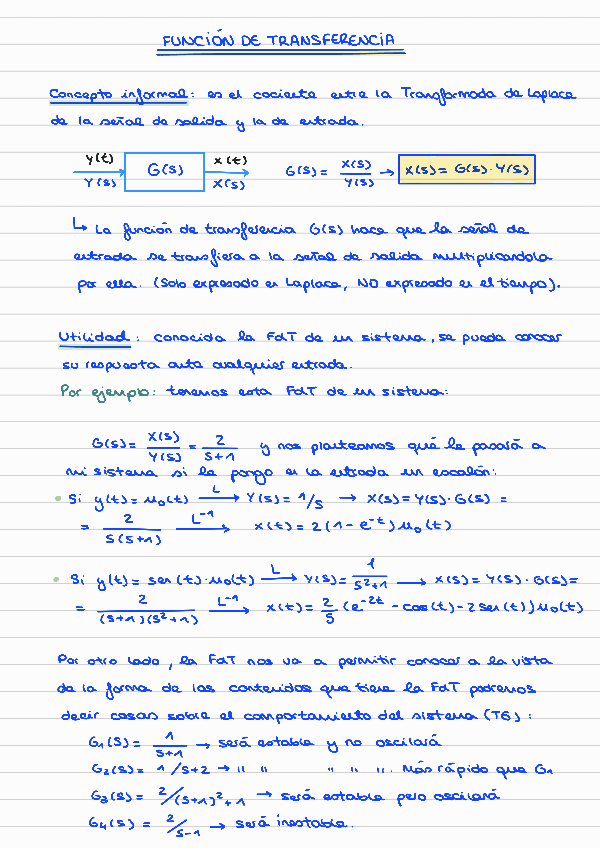 FUNCIÓN DE TRANSFERENCIA
Concepto informal: es el cociente entre la Transformada de Laplace
de la señal de salida y la de entrada.
y(t) G(s) x(t) G(s) = X(s)/Y(s) → X(s) = G(s) · Y(s)
Y(s) X(s)
↳ La función de transferencia G(s) hace que la señal de
entrada se transfiera a la señal de salida multiplicandola
por ella. (Solo expresado en Laplace, NO expresado en el tiempo).
Utilidad: conocida la FdT de un sistema, se puede conocer
su respuesta ante cualquier entrada.
Por ejemplo: tenemos esta FdT de un sistema:
G(s) = X(s)/Y(s) = 2/s+1 y nos planteamos qué le pasará a
mi sistema si le pongo en la entrada un escalón:
• Si y(t) = μ₀(t) —L→ Y(s) = 1/s → X(s) = Y(s) · G(s) =
= 2/s(s+1) —L⁻¹→ x(t) = 2(1 - e^-t) μ₀(t)
• Si y(t) = sen(t) · μ₀(t) —L→ Y(s) = 1/s²+1 → X(s) = Y(s) · G(s) =
= 2/(s+1)(s²+1) —L⁻¹→ x(t) = 2/5 (e^-2t - cos(t) - 2sen(t)) μ₀(t)
Por otro lado, la FdT nos va a permitir conocer a la vista
de la forma de los contenidos que tiene la FdT podremos
decir cosas sobre el comportamiento del sistema (T6):
G₁(s) = 1/s+1 → será estable y no oscilará
G₂(s) = 1/s+2 → " " " " ". Más rápido que G₁
G₃(s) = 2/(s+1)²+1 → será estable pero oscilará
G₄(s) = 2/s-1 → será inestable.